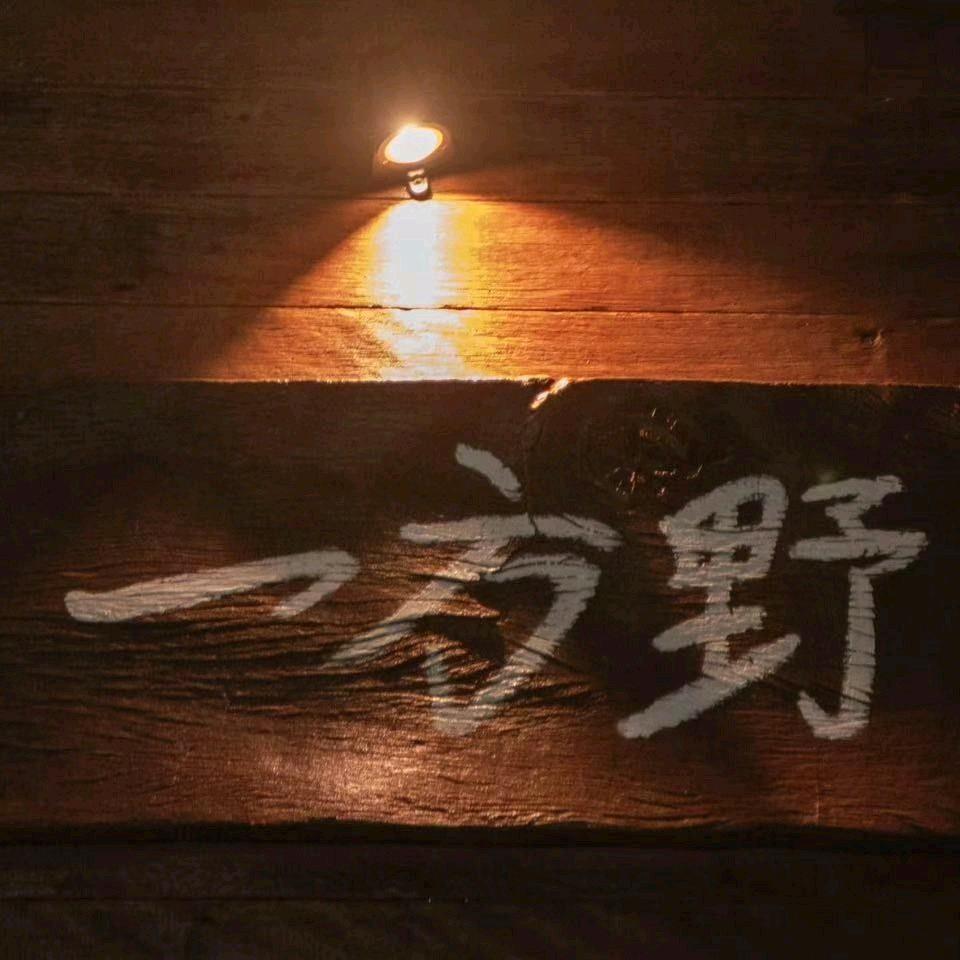 一方野